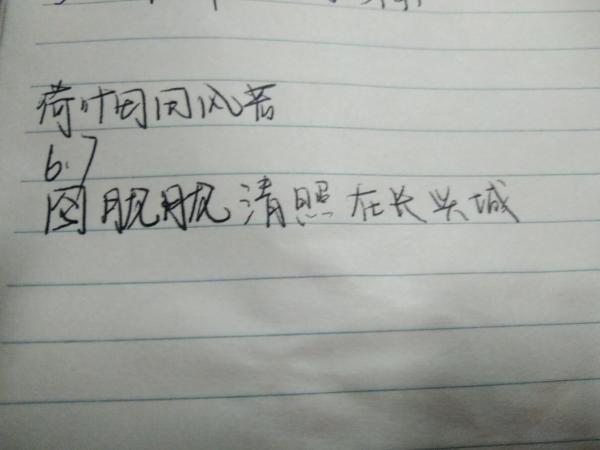 荷叶田田风若
6.7
图胧胧清照在长兴城